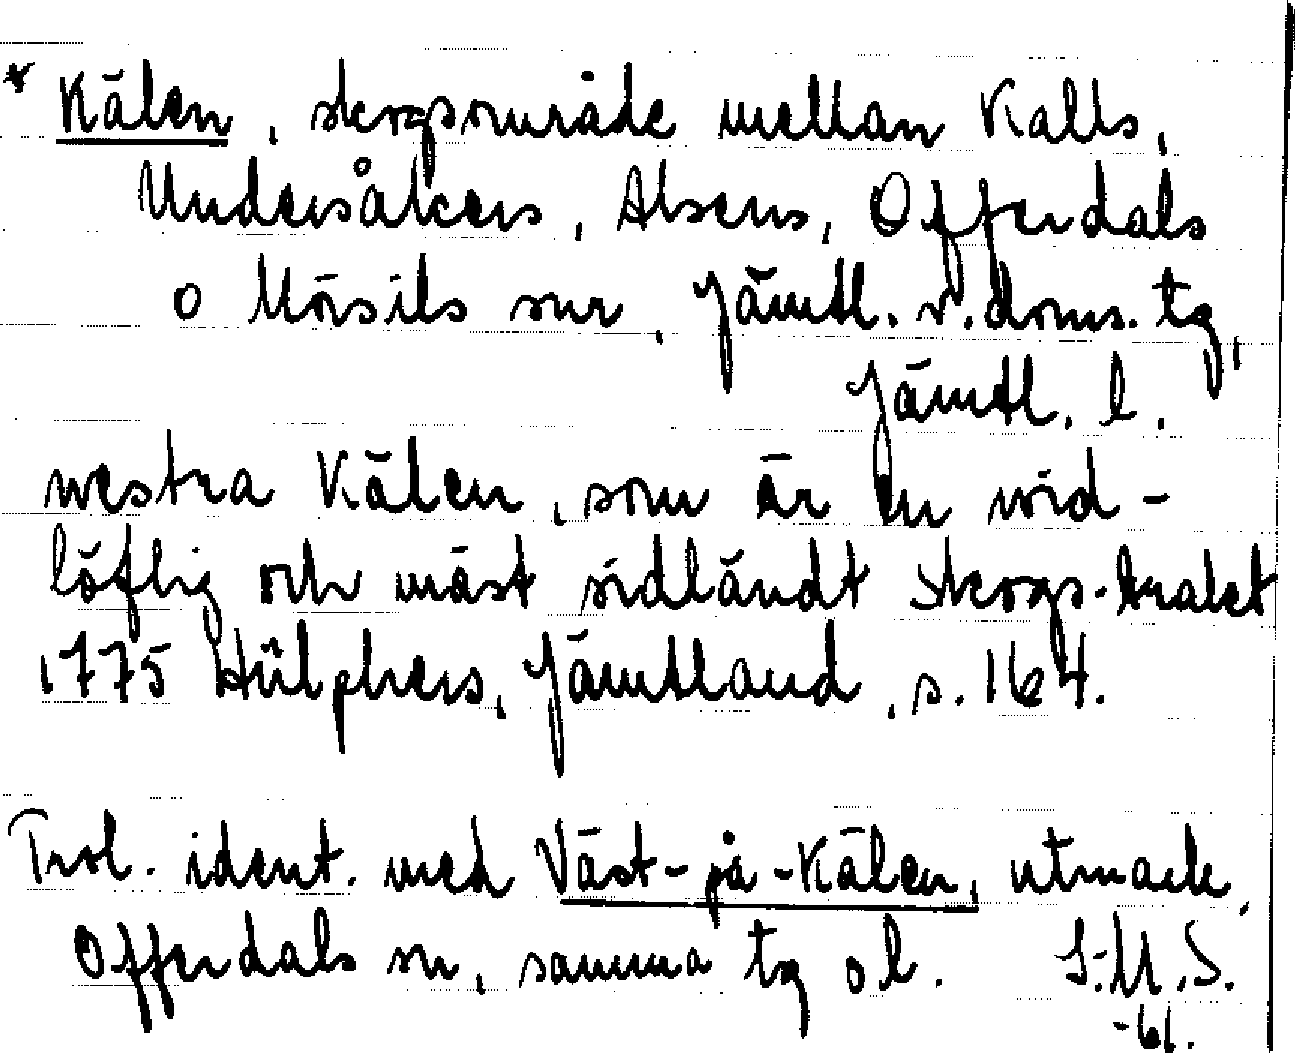 * Kälen, skogsområde mellan Kalls,
Undersåkers, Alsens, Offerdals
o Mörsils snr, Jämtl. v. doms. tg,
Jämtl. l.
westra Kälen, som är en wid-
löftig och mäst sidländt skogs-trakt
1775 Hülphers, Jämtland, s. 164.
Trol. ident. med Väst-på-Kälen, utmark,
Offerdals sn, samma tg o l. S.-M.S.
-61.